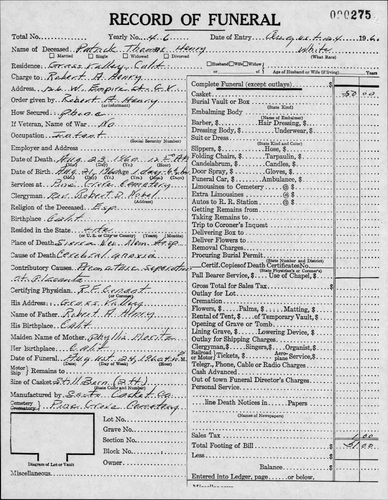 RECORD OF FUNERAL
000275
Total No. Yearly No. 46 Date of Entry August 24 1960
Name of Deceased Patrick Thomas Henry White
Married Single Widowed Divorced (What Race)
Residence: Grass Valley, Calif. Husband Wife Widow of
Charge to: Robert A. Henry Age of Husband or Wife (if living) Years
Address: E. Empire St. G.V.
Order given by Robert A. Henry
How Secured Phone
If Veteran, Name of War No
Occupation Infant
(Social Security Number)
Employer and Address
Date of Death Aug. 23, 1960
Date of Birth Aug. 1960 1 day
Services at Pine Grove Cemetery
Clergyman Rev. Robert D.
Religion of the Deceased Esp.
Birthplace Calif.
Resided in the State life
Place of Death Sierra Nev. Mem. Hosp.
Cause of Death Cerebral anoxia
Contributory Causes Premature separation
of placenta
Certifying Physician
His Address Grass Valley
Name of Father Robert A. Henry
His Birthplace Calif.
Maiden Name of Mother Phyllis
Her Birthplace Calif.
Date of Funeral August 24, 1960
Motor Ship Remains to
Size of Casket Still Born (2 ft)
(State Color and Number)
Manufactured by Casket Co.
Cemetery Crematory Pine Grove Cemetery
Lot No.
Grave No.
Section No.
Block No.
Owner
Diagram of Lot or Vault
Miscellaneous
Complete Funeral (except outlays) $
Casket 50 00
Burial Vault or Box
(State Kind)
Embalming Body
Barber, $ Hair Dressing, $
Dressing Body, $ Underwear, $
Suit or Dress
(State Kind and Color)
Slippers, $ Hose, $
Folding Chairs, $ Tarpaulin, $
Candelabrum, $ Candles, $
Door Spray, $ Gloves, $
Funeral Car, $ Ambulance, $
Limousines to Cemetery @ $
Extra Limousines @ $
Autos to R. R. Station @ $
Getting Remains from
Taking Remains to
Trip to Coroner's Inquest
Delivering Box to
Deliver Flowers to
Removal Charges
Procuring Burial Permit
(State Number and District)
Certif. Copies of Death Certificates No.
(State Physician's or Coroner's)
Pall Bearer Service, $ Use of Chapel, $
Gross Total for Sales Tax $
Outlay for Lot
Cremation
Flowers, $ Palms, $ Matting, $
Rental of Tent, $ of Temporary Vault, $
Opening of Grave or Tomb
Lining Grave, $ Lowering Device, $
Outlay for Shipping Charges
Clergyman, $ Singers, $ Organist, $
Railroad or Motor Tickets, $ Aeroplane Service, $
Telegr., Phone, Cable or Radio Charges
Cash Advanced
Out of town Funeral Director's Charges
Personal Service
line Death Notices in Papers
(Names of Newspapers)
Sales Tax 1 00
Total Footing of Bill $ 51 00
Less
Balance $
Entered into Ledger, page or below.